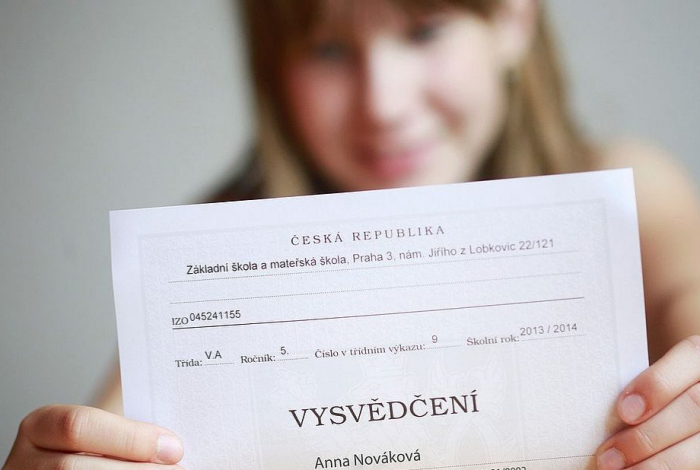 ČESKÁ REPUBLIKA
Základní škola a mateřská škola, Praha 3, nám. Jiřího z Lobkovic 22/121
IZO 045241155
Třída: V.A Ročník: 5. Číslo v třídním výkazu: 9 Školní rok: 2013 / 2014
VYSVĚDČENÍ
Anna Nováková